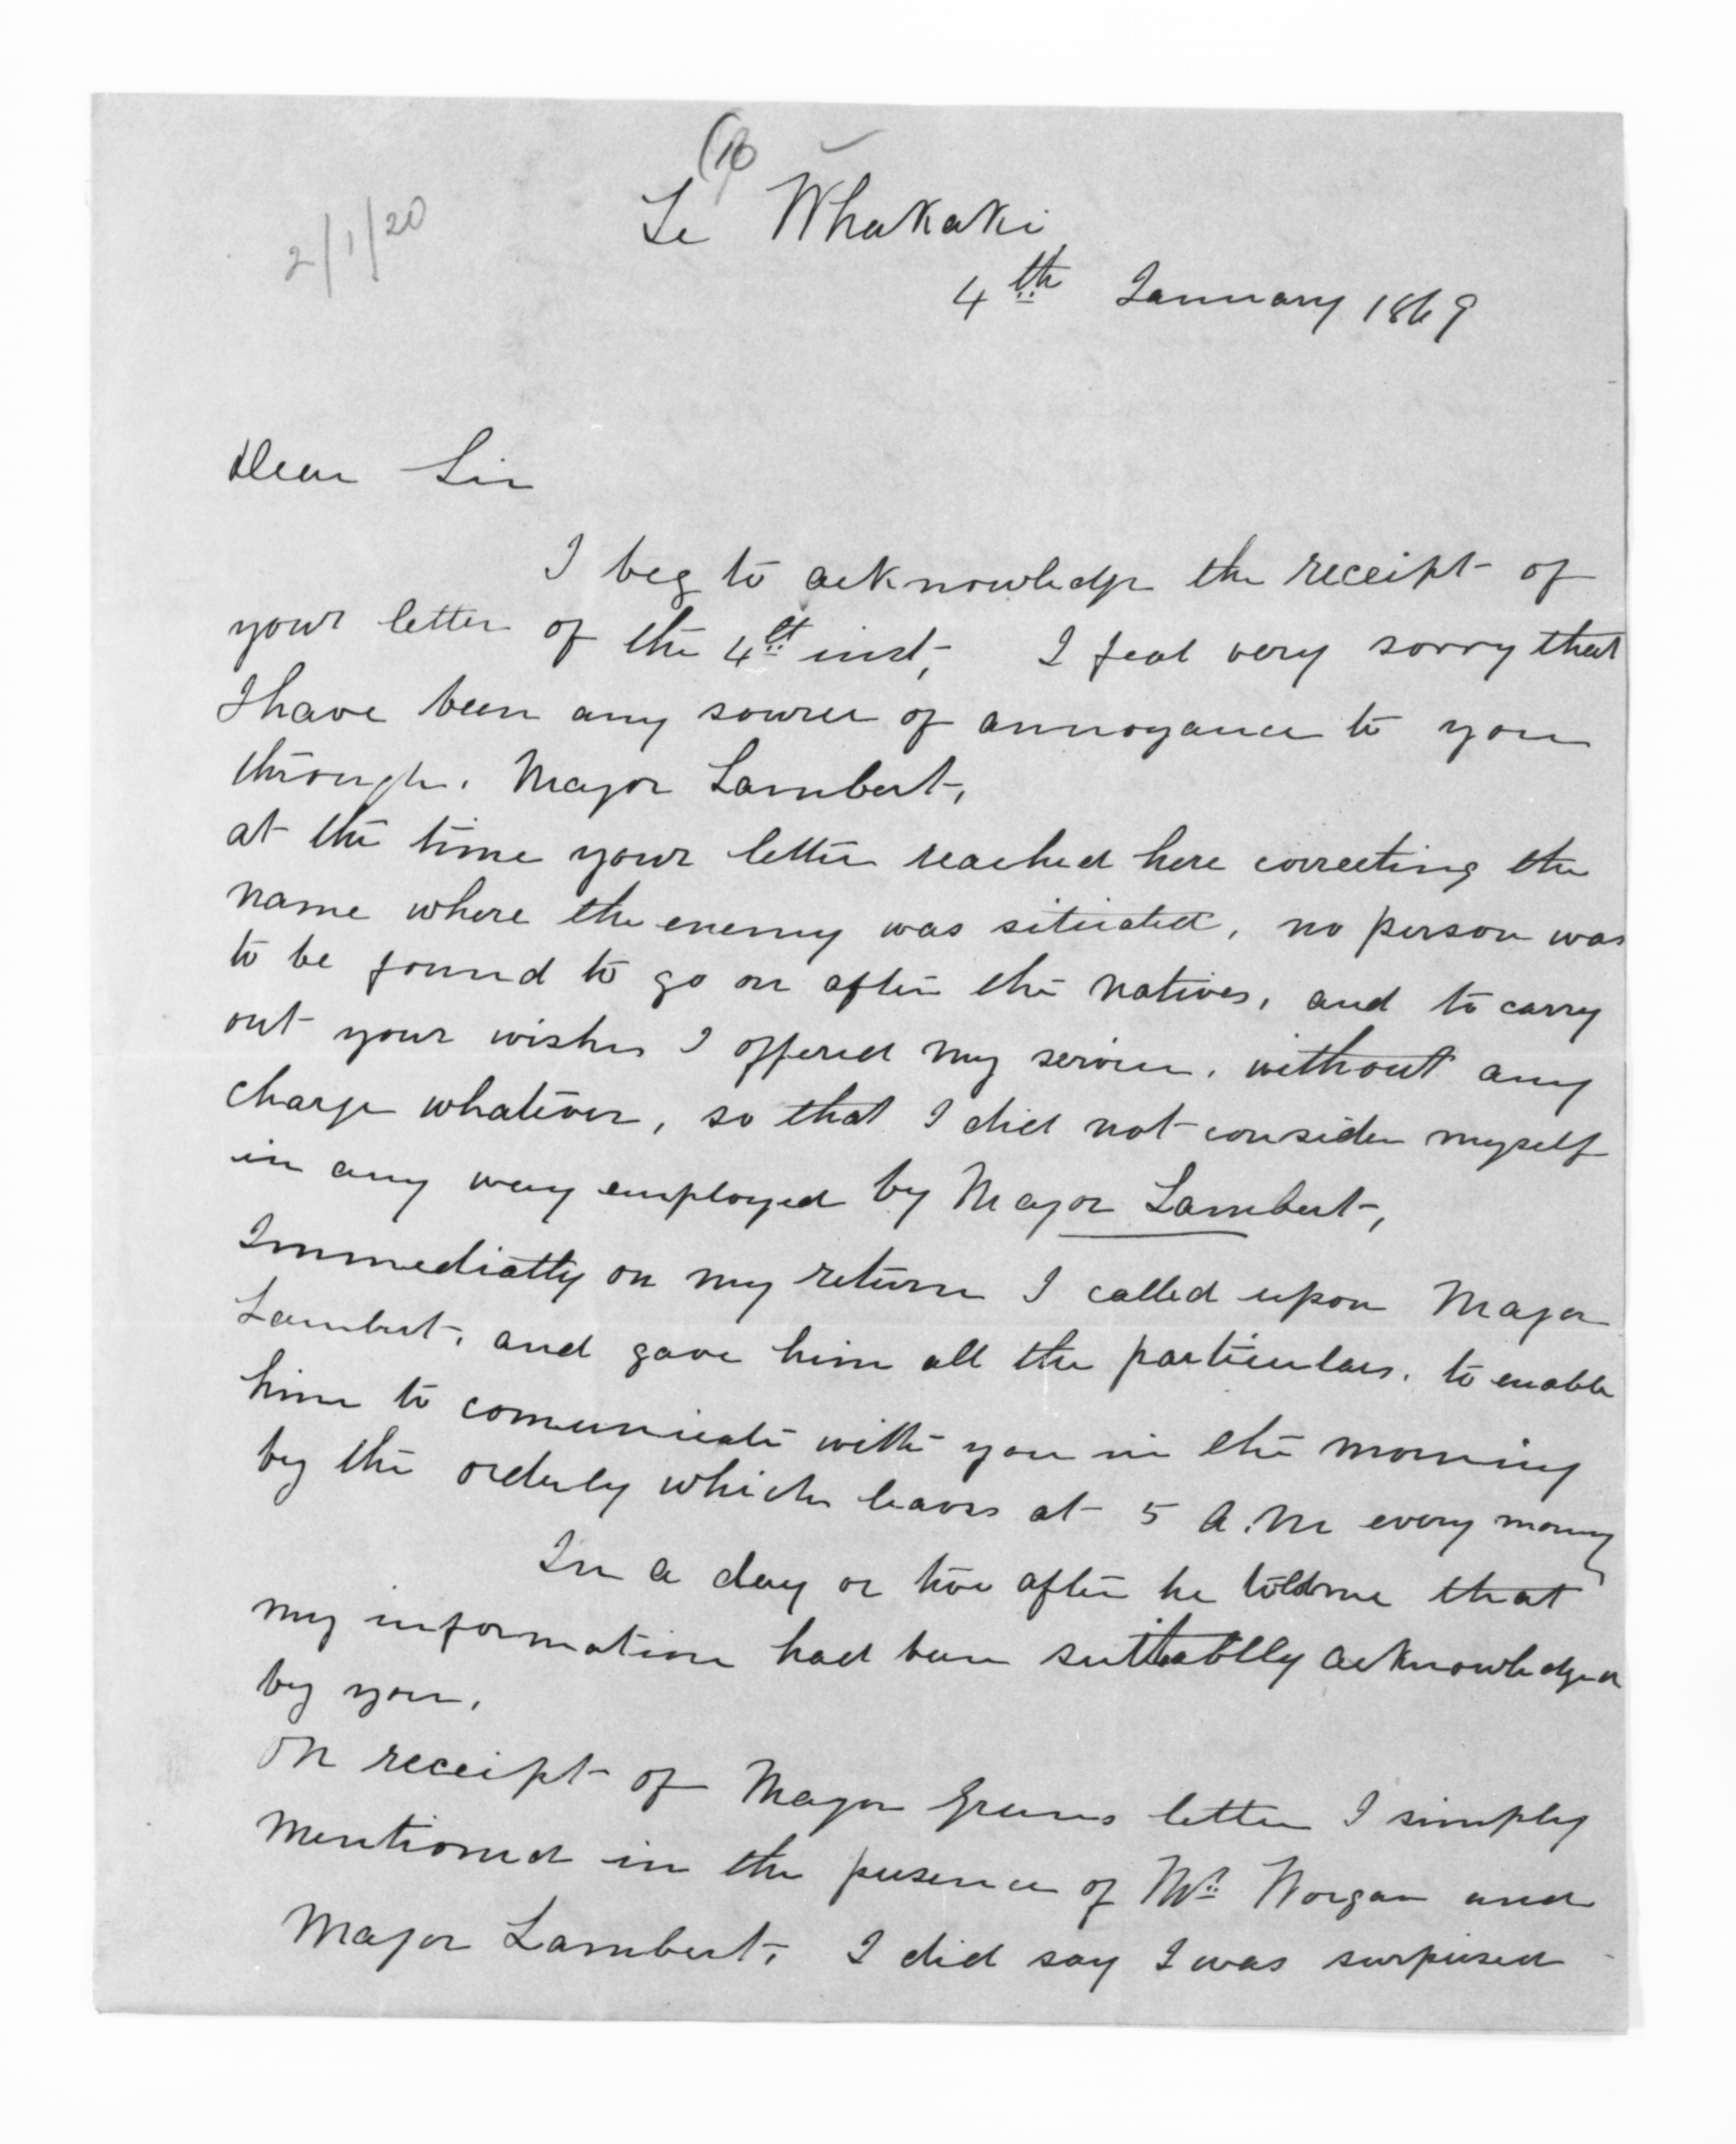 (10
2/1/20
Te Whakaki
4th January 1869
Dear Sir
I beg to acknowledge the receipt of
your letter of the 4th inst, I feal very sorry that
I have been any source of annoyance to you
through. Major Lambert,
at the time your letter reached here correcting the
name where the enemy was situated, no person was
to be found to go on after the natives, and to carry
out your wishes I offered my services, without any
charge whatever, so that I did not consider myself
in any way employed by Major Lambert,
Immediatly on my return I called upon Major
Lambert, and gave him all the particulars, to enable
him to comunicate with you in the morning
by the orderly which leaves at 5 A.M every morning
In a day or two after he told me that
my information had been suitablly acknowledged
by you,
On receipt of Major Greens letter I simply
mentioned in the presence of Mr Worgan and
Major Lambert, I did say I was surprised